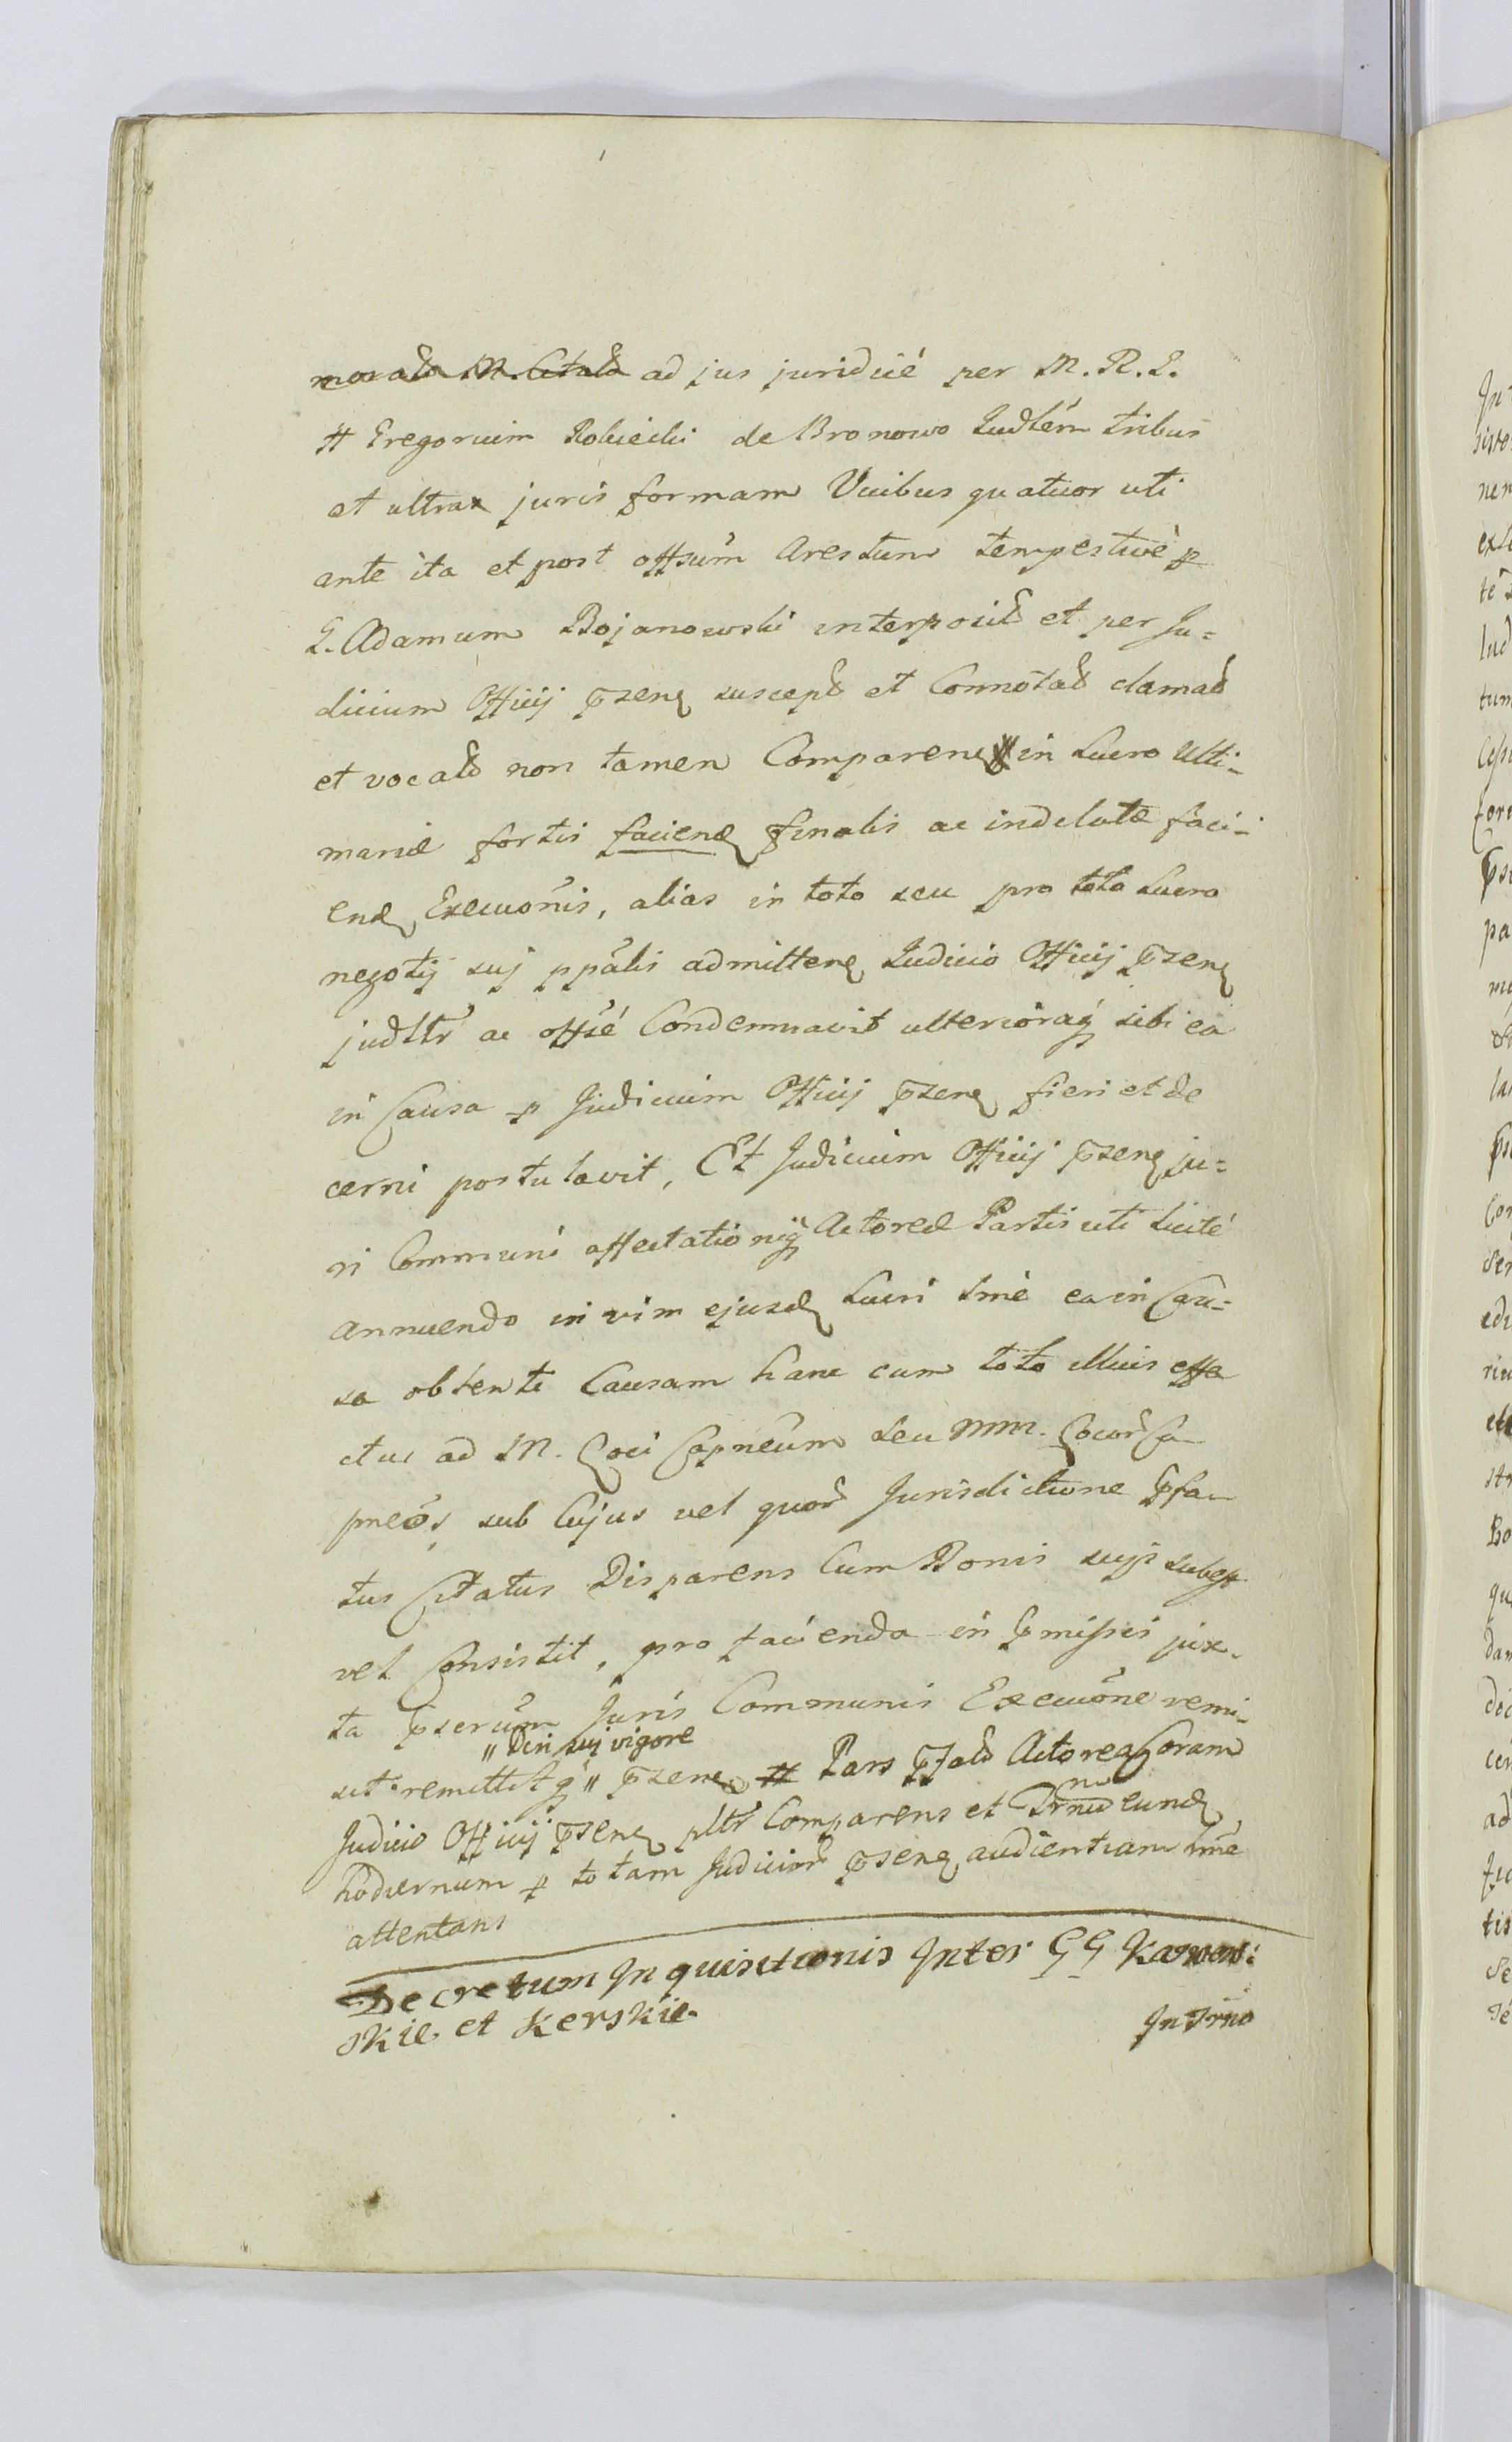 morata M. Citata ad jus juridicé per M. R. G.
# Gregorium Robiecki de Bronowo Judlem tribus
et ultra juris formam Vicibus quatuor uti
ante ita et post offsum Arestum tempestivè p
G. Adamum Bojanowski interposit et per Ju=
dicium Officij psens suscept et Connotat clamat
et vocat non tamen Comparens in Lucro Ulti-
mariæ fortis faciend finalis ac indelatæ faci-
end Execuōnis, alias in toto seu pro toto Lucro
negotij suj ppālis admittens Judicio Officij psens
judltr ac offsé Condemnavit ulterioraq sibi ea
in Causa p Judicium Officij psens fieri et de
cerni postulavit, Et Judicium Officij psens ju=
ri Communi affectationiq Actoreæ Partis uti licité
annuendo in vim ejusd Lucri tmè ea in Cau=
sa obtenti Causam hanc cum toto illius effe
ctu ad M. Loci Capneum seu MM. Locor Ca-
pneōs, sub Cujus vel quor Jurisdictione pfa-
tus Citatus Disparens Cum Bonis suis subest
vel Consistit, pro facienda in pmissis jux-
ta pserūm Juris Communis Execuōne remi-
" Dcri suj vigore
sit remittitq" psens # Pars pfat Actorea Coram
Judicio Officij psens pltr Comparens et Trnū eund
hodiernum p totam Judicior psens audientiam tmè
attentans
Decretum Inquisitionis Inter GG Karwos:
skie. et Kerskie.
In Trno